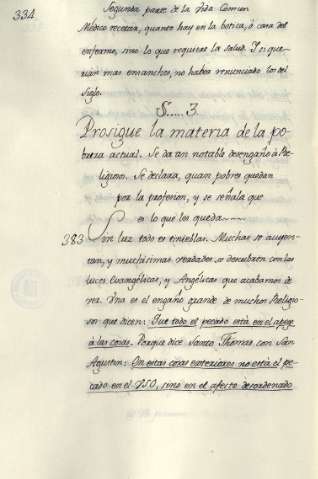 334
Segunda parte de la Vida Comun
Medico recetar, quanto hay en la botica, ò casa del
enfermo, sino lo que requiere la salud. Y si que-
rian mas ensanches, no haber renunciado los del
siglo.
§..... 3.
Prosigue la materia de la po-
breza actual. Se da un notable desengaño à Re-
ligiosos. Se declara, quan pobres quedan
por la profesion, y se señala que
es lo que les queda.....
383 Sin luz todo es tinieblas. Muchas se auyen-
tan, y muchisimas verdades se descubren con las
luces Evangelicas, y Angelicas que acabamos de
ver. Una es el engaño grande de muchos Religio-
sos que dicen: Que todo el pecado està en el apego
à las cosas. Porque dice Santo Thomas con San
Agustin: En estas cosas exteriores no està el pe-
cado en el USO, sino en el afecto desordenado